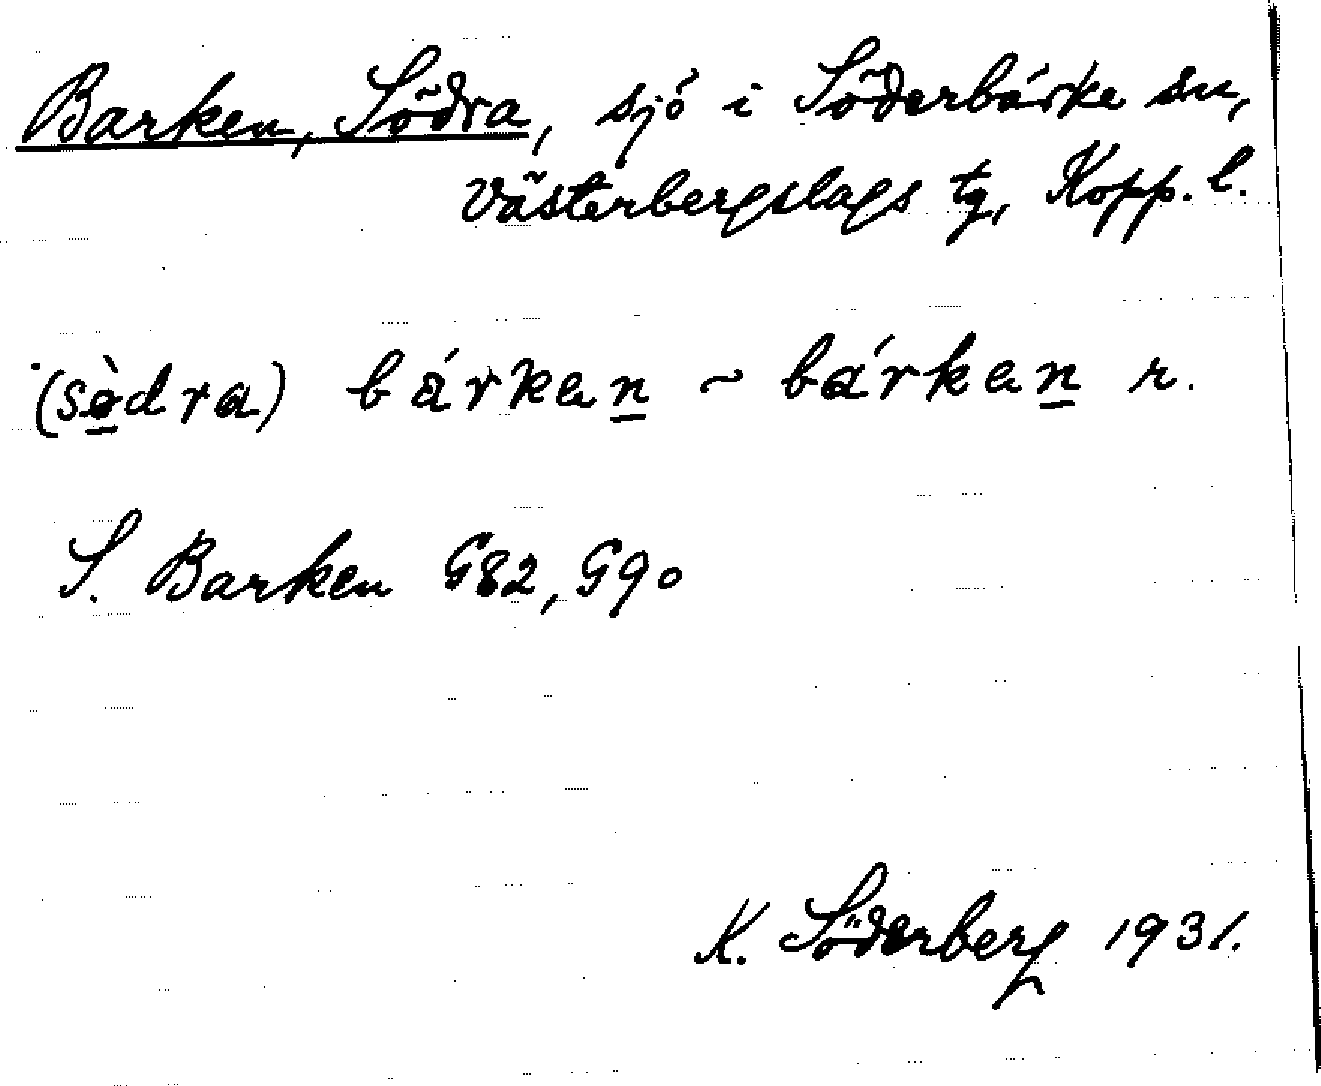 Barken, Södra, sjö i Söderbärke sn,
Västerbergslags tg, Kopp. l.
(södra) bárken ~ bárken r.
S. Barken G82, G90
K. Söderberg 1931.